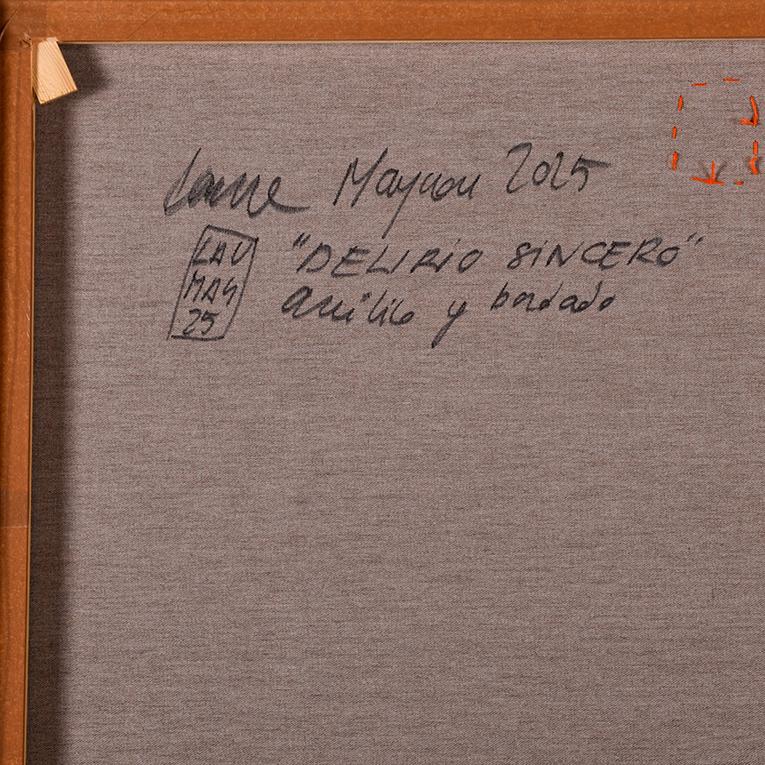 Laura Magnou 2025
LAU
MAG
25
"DELIRIO SINCERO"
Acrílico y bordado